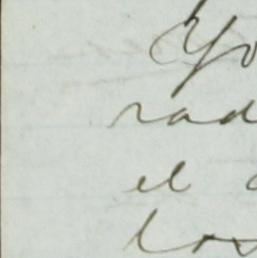 Yo
rad
el
los